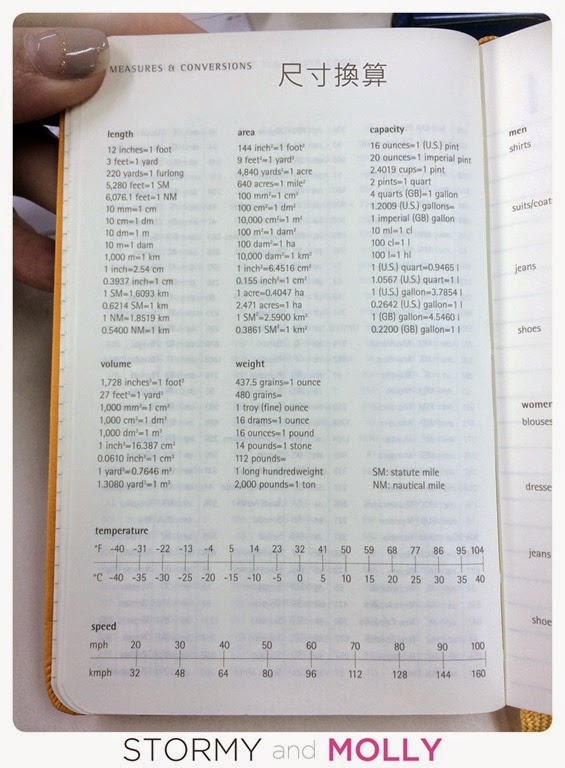 MEASURES & CONVERSIONS
尺寸換算
length
12 inches=1 foot
3 feet=1 yard
220 yards=1 furlong
5,280 feet=1 SM
6,076.1 feet=1 NM
10 mm=1 cm
10 cm=1 dm
10 dm=1 m
10 m=1 dam
1,000 m=1 km
1 inch=2.54 cm
0.3937 inch=1 cm
1 SM=1.6093 km
0.6214 SM=1 km
1 NM=1.8519 km
0.5400 NM=1 km
area
144 inch²=1 foot²
9 feet²=1 yard²
4,840 yards²=1 acre
640 acres=1 mile²
100 mm²=1 cm²
100 cm²=1 dm²
10,000 cm²=1 m²
100 m²=1 dam²
100 dam²=1 ha
10,000 dam²=1 km²
1 inch²=6.4516 cm²
0.155 inch²=1 cm²
1 acre=0.4047 ha
2.471 acres=1 ha
1 SM²=2.5900 km²
0.3861 SM²=1 km²
capacity
16 ounces=1 (U.S.) pint
20 ounces=1 imperial pint
2.4019 cups=1 pint
2 pints=1 quart
4 quarts (GB)=1 gallon
1.2009 (U.S.) gallons=
1 imperial (GB) gallon
10 ml=1 cl
100 cl=1 l
100 l=1 hl
1 (U.S.) quart=0.9465 l
1.0567 (U.S.) quart=1 l
1 (U.S.) gallon=3.7854 l
0.2642 (U.S.) gallon=1 l
1 (GB) gallon=4.5460 l
0.2200 (GB) gallon=1 l
volume
1,728 inches³=1 foot³
27 feet³=1 yard³
1,000 mm³=1 cm³
1,000 cm³=1 dm³
1,000 dm³=1 m³
1 inch³=16.387 cm³
0.0610 inch³=1 cm³
1 yard³=0.7646 m³
1.3080 yard³=1 m³
weight
437.5 grains=1 ounce
480 grains=
1 troy (fine) ounce
16 drams=1 ounce
16 ounces=1 pound
14 pounds=1 stone
112 pounds=
1 long hundredweight
2,000 pounds=1 ton
SM: statute mile
NM: nautical mile
temperature
°F -40 -31 -22 -13 -4 5 14 23 32 41 50 59 68 77 86 95 104
°C -40 -35 -30 -25 -20 -15 -10 -5 0 5 10 15 20 25 30 35 40
speed
mph 20 30 40 50 60 70 80 90 100
kmph 32 48 64 80 96 112 128 144 160
men
shirts
suits/coat
jeans
shoes
women
blouses
dresse
jeans
shoe
STORMY and MOLLY